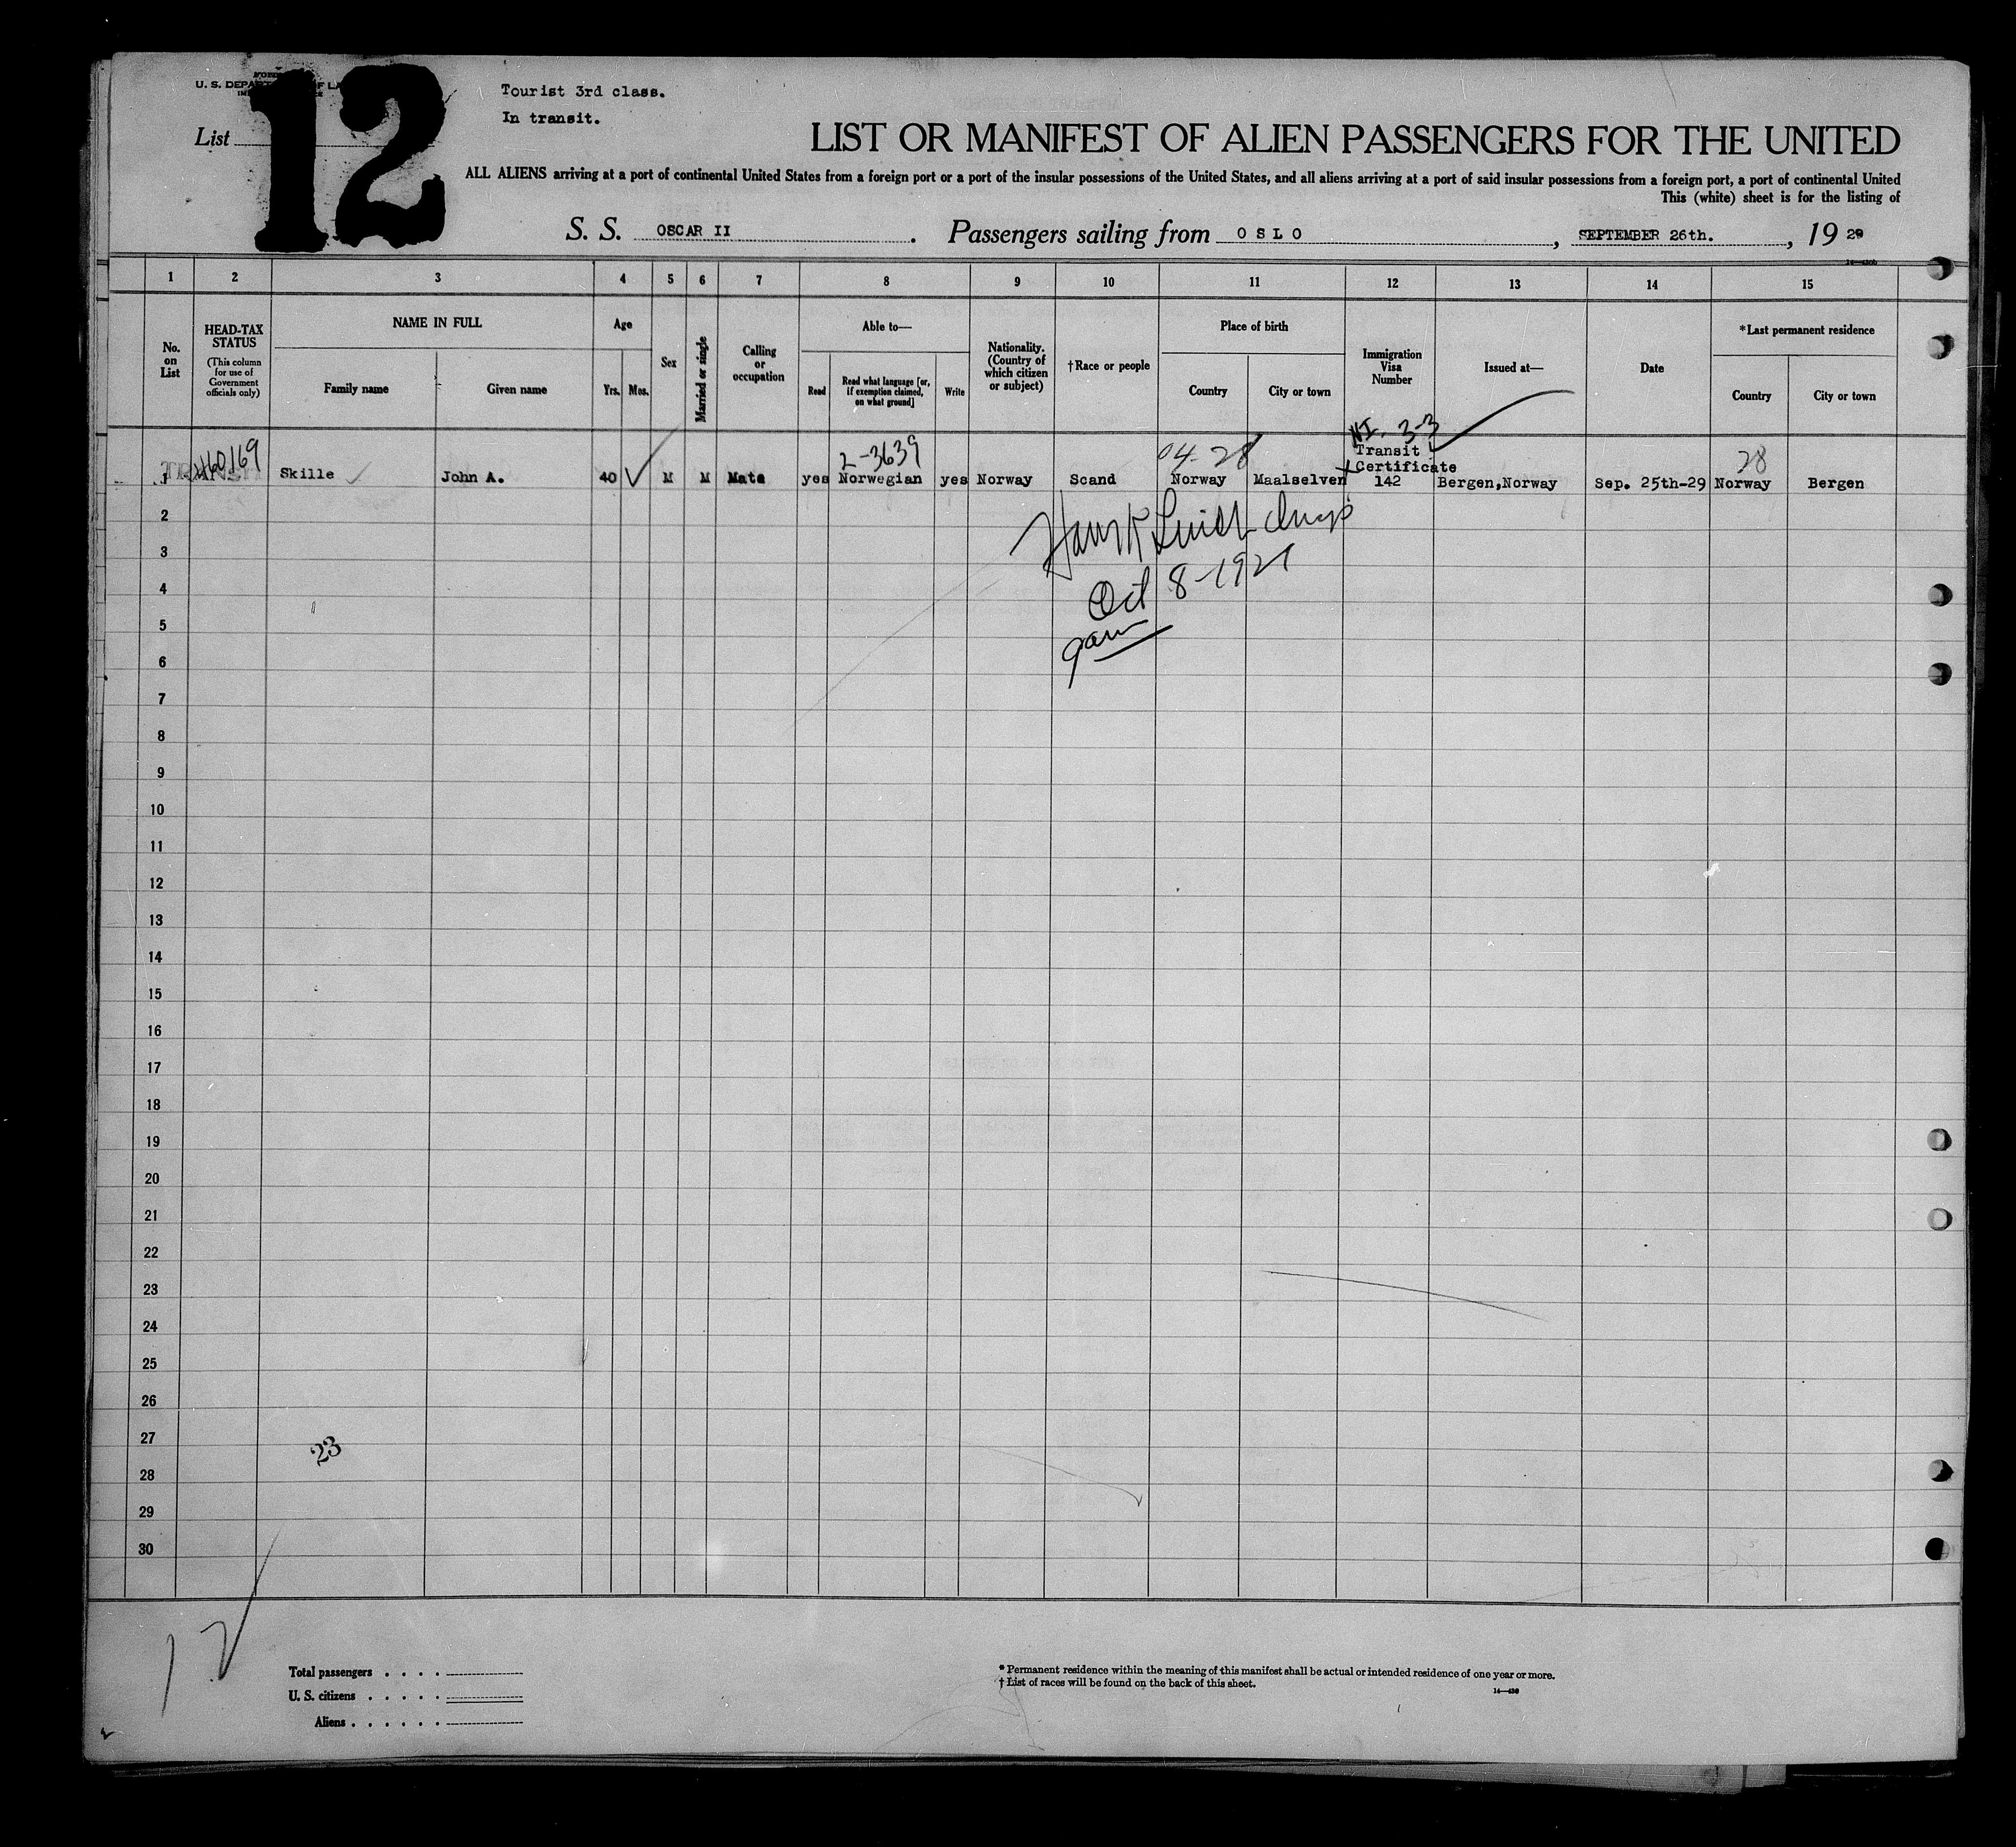 U. S. DEPA
List
12
Tourist 3rd class.
In transit.
LIST OR MANIFEST OF ALIEN PASSENGERS FOR THE UNITED
ALL ALIENS arriving at a port of continental United States from a foreign port or a port of the insular possessions of the United States, and all aliens arriving at a port of said insular possessions from a foreign port, a port of continental United
This (white) sheet is for the listing of
S. S. OSCAR II. Passengers sailing from OSLO, SEPTEMBER 26th., 19 29
1 2 3 4 5 6 7 8 9 10 11 12 13 14 15
No. on List
HEAD-TAX STATUS
(This column for use of Government officials only)
NAME IN FULL
Family name
Given name
Age
Yrs. Mos.
Sex
Married or single
Calling or occupation
Able to—
Read
Read what language [or, if exemption claimed, on what ground]
Write
Nationality. (Country of which citizen or subject)
†Race or people
Place of birth
Country
City or town
Immigration Visa Number
Issued at—
Date
*Last permanent residence
Country
City or town
NI. 3-3
2-3639
04-28
Transit Certificate
28
1 TRANSIT Skille John A. 40 M M Mate yes Norwegian yes Norway Scand Norway Maalselven 142 Bergen,Norway Sep. 25th-29 Norway Bergen
2
3
Oct 8-1929
4
5
6
7
8
9
10
11
12
13
14
15
16
17
18
19
20
21
22
23
24
25
26
27
23
28
29
30
12
Total passengers . . . .
U. S. citizens . . . . .
Aliens . . . . . .
* Permanent residence within the meaning of this manifest shall be actual or intended residence of one year or more.
† List of races will be found on the back of this sheet.